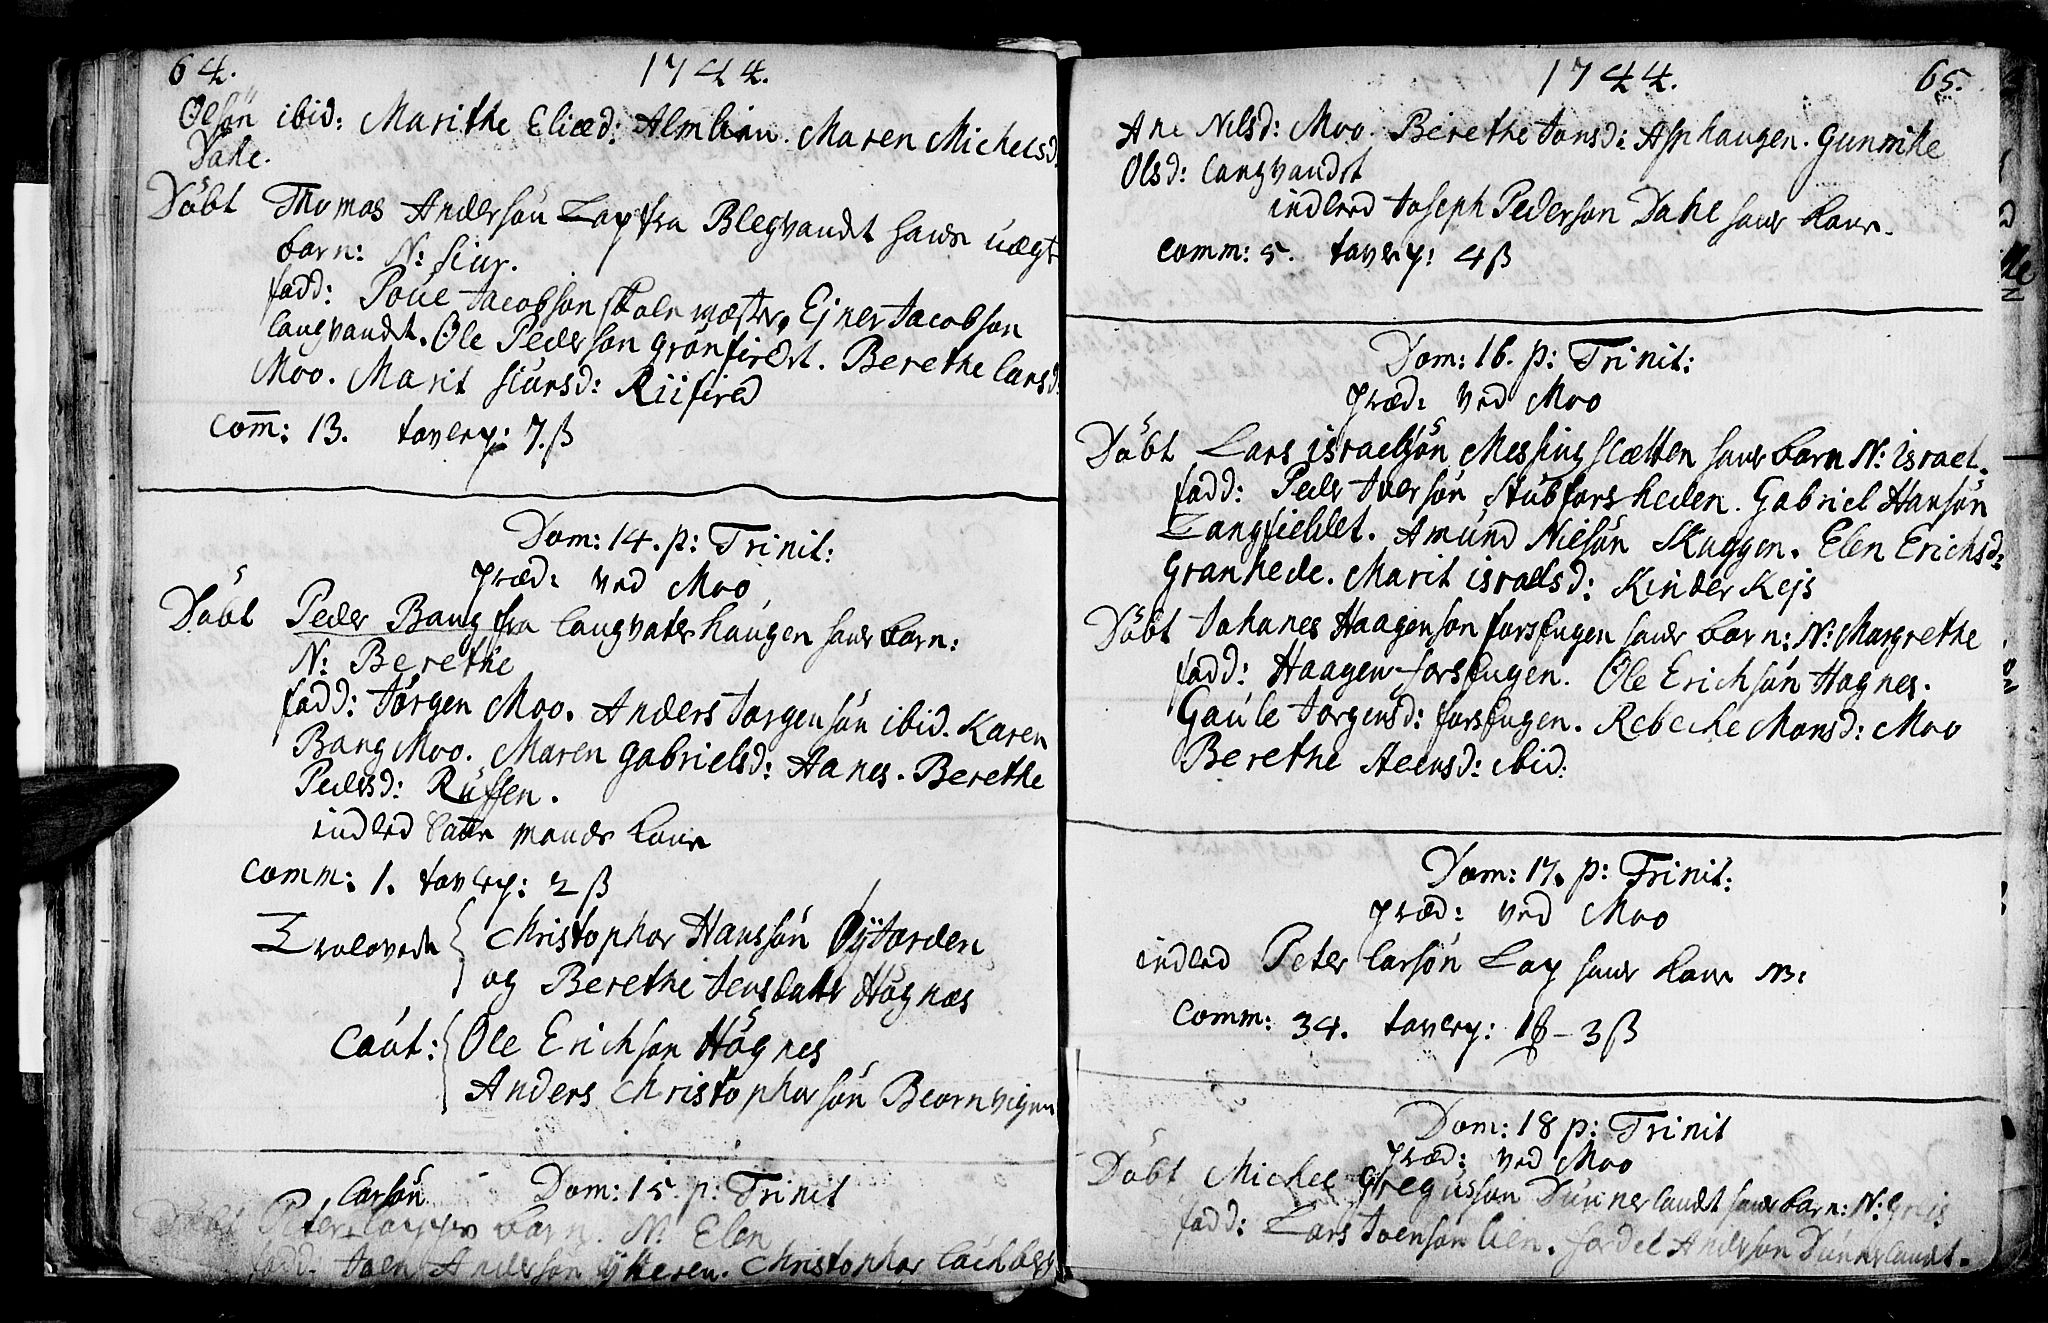 64. 1744.
Olsön ibid: Marithe Eliæd: Almlien. Maren Michelsd
Dahe.
Döbt Thomas Andersön Lap fra Blegvandt hans uægt
barn: N: Siur.
fadd: Poúe Jacobsön skolemæster, Ejner Jacobson
langvandt. Ole Pederson grönfiredt. Berethe larsd
Moo. Marit siursd: Riifired
com̅: 13. tavlep: 7.ß
Dom: 14. p: Trinit:
præd: ved Moo
Döbt Peder Bang fra langvatshaugen hans barn:
N: Berethe
fadd: Jörgen Moo. Anders Jorgensön ibid. Karen
Bang Moo. Maren gabrielsd: Hanes. Berethe
Pedersd: Rúffen.
indled mands kone
comm: 1. tavlep: 2 ß
Trolovede Christophor Hanssön Öijjorden
og Berethe Jensdatr Högnæs
Caút: Ole Erichson Högnes
Anders Christophorsön Beornvignn
Larsön Dom: 15. p: Trinit
Döbt Peter lappes barn. N: Elen
fadd. Joen Andersön ytteren. Christophor
1744. 65.
Ane Nilsd: Moo. Berethe Jonsd: Asphaugen. gunnihe
Olsd: langvandt
indled Joseph Pederson Dahe hans kone.
comm: 5. tavlep: 4ß
Dom: 16. p: Trinit:
præd: ved Moo
Döbt Lars israelsön Messingslætten hans barn N: israel.
fadd: Peder Iversön Stúbforsheden. Gabriel Hansön
Langfieldet. Amúnd Nilsön Skaggen. Elen Erichsd:
granhede. Marit israelsd: Kinder Kejs
Döbt Johanes Haagenson forsfugen hans barn: N: Margrethe
fadd: Haagen forsfugen. Ole Erichsön Hagnes.
Gaúle Jorgensd: forsfugen. Rebeche Monsd: Moo
Berethe steensd: ibid:
Dom: 17. p: Trinit:
præd: ved Moo
indled Peter larsön Lap hans kone NB:
Comm: 34. tavlep: 1 – 3ß
Dom: 18 p: Trinit
præd: ved Moo
Döbt Michel gregússon Dúnnerlandt hans barn: N: gris
fadd: Lars Joensön lien. Fordel Anderson Dúnnerlandt.